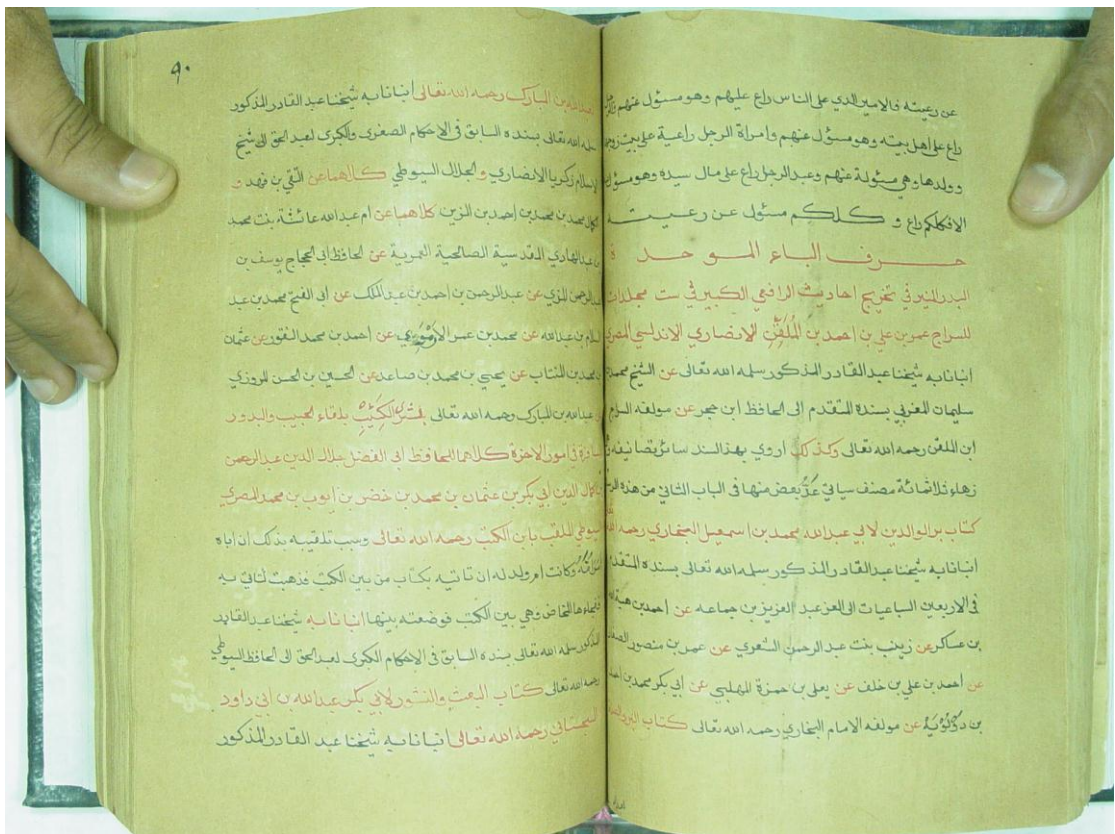 عن رعيته فالامير الذي على الناس راع عليهم وهو مسئول عنهم
راع على اهل بيته وهو مسئول عنهم وامراة الرجل راعية على بيت زوجها
وولدها وهي مسئولة عنهم وعبد الرجل راع على مال سيده وهو مسئول
الا فكلكم راع وكلكم مسئول عن رعيته
حرف الباء الموحدة
البدر المنير في تخريج احاديث الرافعي الكبير في ست مجلدات
للسراج عمر بن علي بن احمد بن المُلَقِّن الانصاري الاندلسي المصري
انبانا به شيخنا عبد القادر المذكور سلمه الله تعالى عن الشيخ محمد بن
سليمان المغربي بسنده المتقدم الى الحافظ ابن حجر عن مولفه السراج
ابن الملقن رحمه الله تعالى وكذلك اروي بهذا السند سائر تصانيفه
زهاء ثلاثمائة مصنف سياتي عدُّ بعض منها في الباب الثاني من هذه
كتاب بر الوالدين لابي عبد الله محمد بن اسمعيل البخاري رحمه الله
انبانا به شيخنا عبد القادر المذكور سلمه الله تعالى بسنده المتقدم
في الاربعين الساعيات الى العز عبد العزيز بن جماعه عن احمد بن هبة الله
بن عساكر عن زينب بنت عبد الرحمن الشعري عن عمر بن منصور الصفار
عن احمد بن علي بن خلف عن يعلى بن حمزة المهلبي عن ابي بكر محمد بن احمد
بن دلويه عن مولفه الامام البخاري رحمه الله تعالى كتاب البر والصلة
٩٠
عبد الله بن المبارك رحمه الله تعالى انبانا به شيخنا عبد القادر المذكور
سلمه الله تعالى بسنده السابق في الاحكام الصغرى والكبرى لعبد الحق الى شيخ
الاسلام زكريا الانصاري والجلال السيوطي كلاهما عن التقي بن فهد و
محمد بن محمد بن احمد بن الزين كلاهما عن ام عبد الله عائشة بنت محمد
بن عبد الهادي المقدسية الصالحية العمرية عن الحافظ ابي الحجاج يوسف بن
عبد الرحمن المزي عن عبد الرحمن بن احمد بن عبد الملك عن ابي الفتح محمد بن عبد
السلام بن عبد الله عن محمد بن عمر الارموي عن احمد بن محمد النقور عن عثمان
بن محمد بن المنتاب عن يحيى بن محمد بن صاعد عن الحسين بن الحسن المروزي
عن عبد الله بن المبارك رحمه الله تعالى بشرى الكئيب بلقاء الحبيب والبدور
السافرة في امور الاخرة كلاهما للحافظ ابي الفضل جلال الدين عبد الرحمن
بن كمال الدين ابي بكر بن عثمان بن محمد بن خضر بن ايوب بن محمد المصري
السيوطي الملقب بابن الكتب رحمه الله تعالى وسبب تلقيبه بذلك ان اباه
وكانت ام ولد له ان تاتيه بكتاب من بين الكتب فذهبت لتاتي به
فجاءها المخاض وهي بين الكتب فوضعته بينها انبانا به شيخنا عبد القادر
المذكور سلمه الله تعالى بسنده السابق في الاحكام الكبرى لعبد الحق الى الحافظ السيوطي
رحمه الله تعالى كتاب البعث والنشور لابي بكر عبد الله بن ابي داود
السجستاني رحمه الله تعالى انبانا به شيخنا عبد القادر المذكور